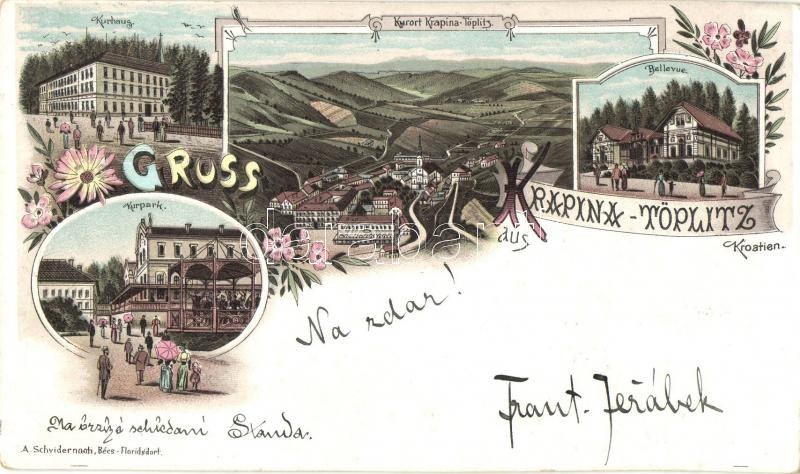 Kurhaus.
Kurort Krapina-Töplitz.
Bellevue.
GRUSS
aus
KRAPINA-TÖPLITZ
Kroatien.
Kurpark.
Na zdar!
Frant. Jeřábek
Na brzké schledaní Standa.
A. Schvidernoch, Bécs-Floridsdorf.